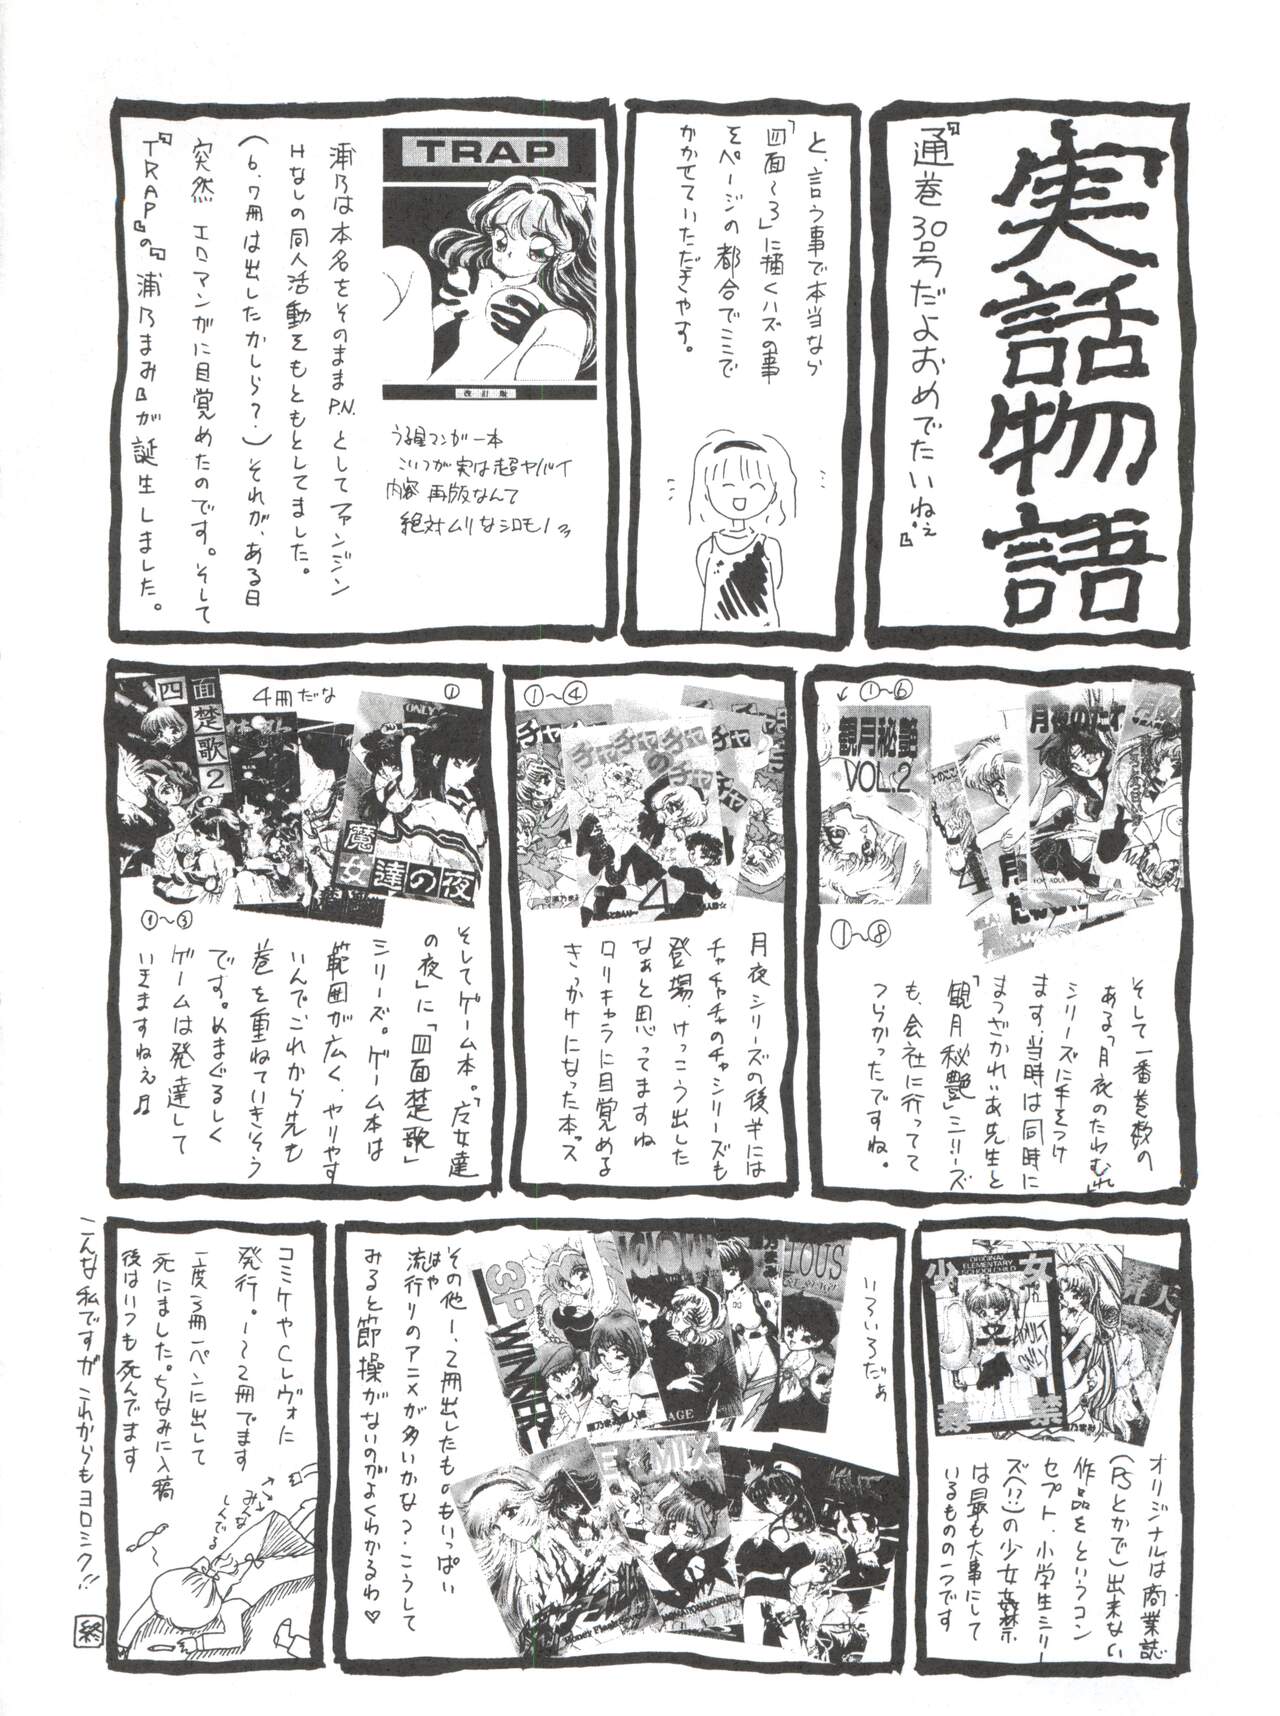 実話物語
『通巻30号だよおめでたいねぇ。』
と、言う事で本当なら
「四面〜3」に描くハズの事
をページの都合でココで
かかせていただきやす。
TRAP
改訂版
うる星マンガ一本
こいつが実は超ヤバイ
内容 再版なんて
絶対ムリなシロモノ
浦乃は本名をそのままP.N.としてファンジン
Hなしの同人活動をもともとしてました。
(6.7冊は出したかしら?.)それが、ある日
突然 エロマンガに目覚めたのです。そして
『TRAP』の『浦乃まみ』が誕生しました。
①〜⑥
観月秘艶
VOL.2
月夜のたわ
①〜⑧
そして一番巻数の
ある「月夜のたわむれ」
シリーズに手をつけ
ます。当時は同時に
まつざかれいあ先生と
「観月秘艶」シリーズ
も、会社に行ってて
つらかったですね。
①〜④
チャチャチャのチャ
4
月夜シリーズの後半には
チャチャチャのチャシリーズも
登場。けっこう出した
なぁと思ってますね
ロリキャラに目覚める
きっかけになった本っス
4冊だな
①
四面楚歌2
ONLY
魔女達の夜
①〜③
そしてゲーム本。「魔女達
の夜」に「四面楚歌」
シリーズ。ゲーム本は
範囲が広く、やりやす
いんでこれから先も
巻を重ねていきそう
です。めまぐるしく
ゲームは発達して
いきますねぇ♫
少女姦禁
ORIGINAL
ELEMENTARY
SCHOOLCHILD
ADULT
ONLY
オリジナルは商業誌
(PSとかで)出来ない
作品をというコン
セプト。小学生シリー
ズ(!?)の少女姦禁
は最も大事にして
いるものの一つです
いろいろだぁ
3P WINNER
AGE
E★MIX
その他1、2冊出したものもいっぱい
はや
流行りのアニメが多いかな?.こうして
みると節操がないのがよくわかるわ♡
コミケやCレヴォに
発行。1〜2冊でます
一度3冊一ペンに出して
死にました。ちなみに入稿
後はいつも死んでます
みんな
しんでる
こんな私ですが これからもヨロシク!!
終